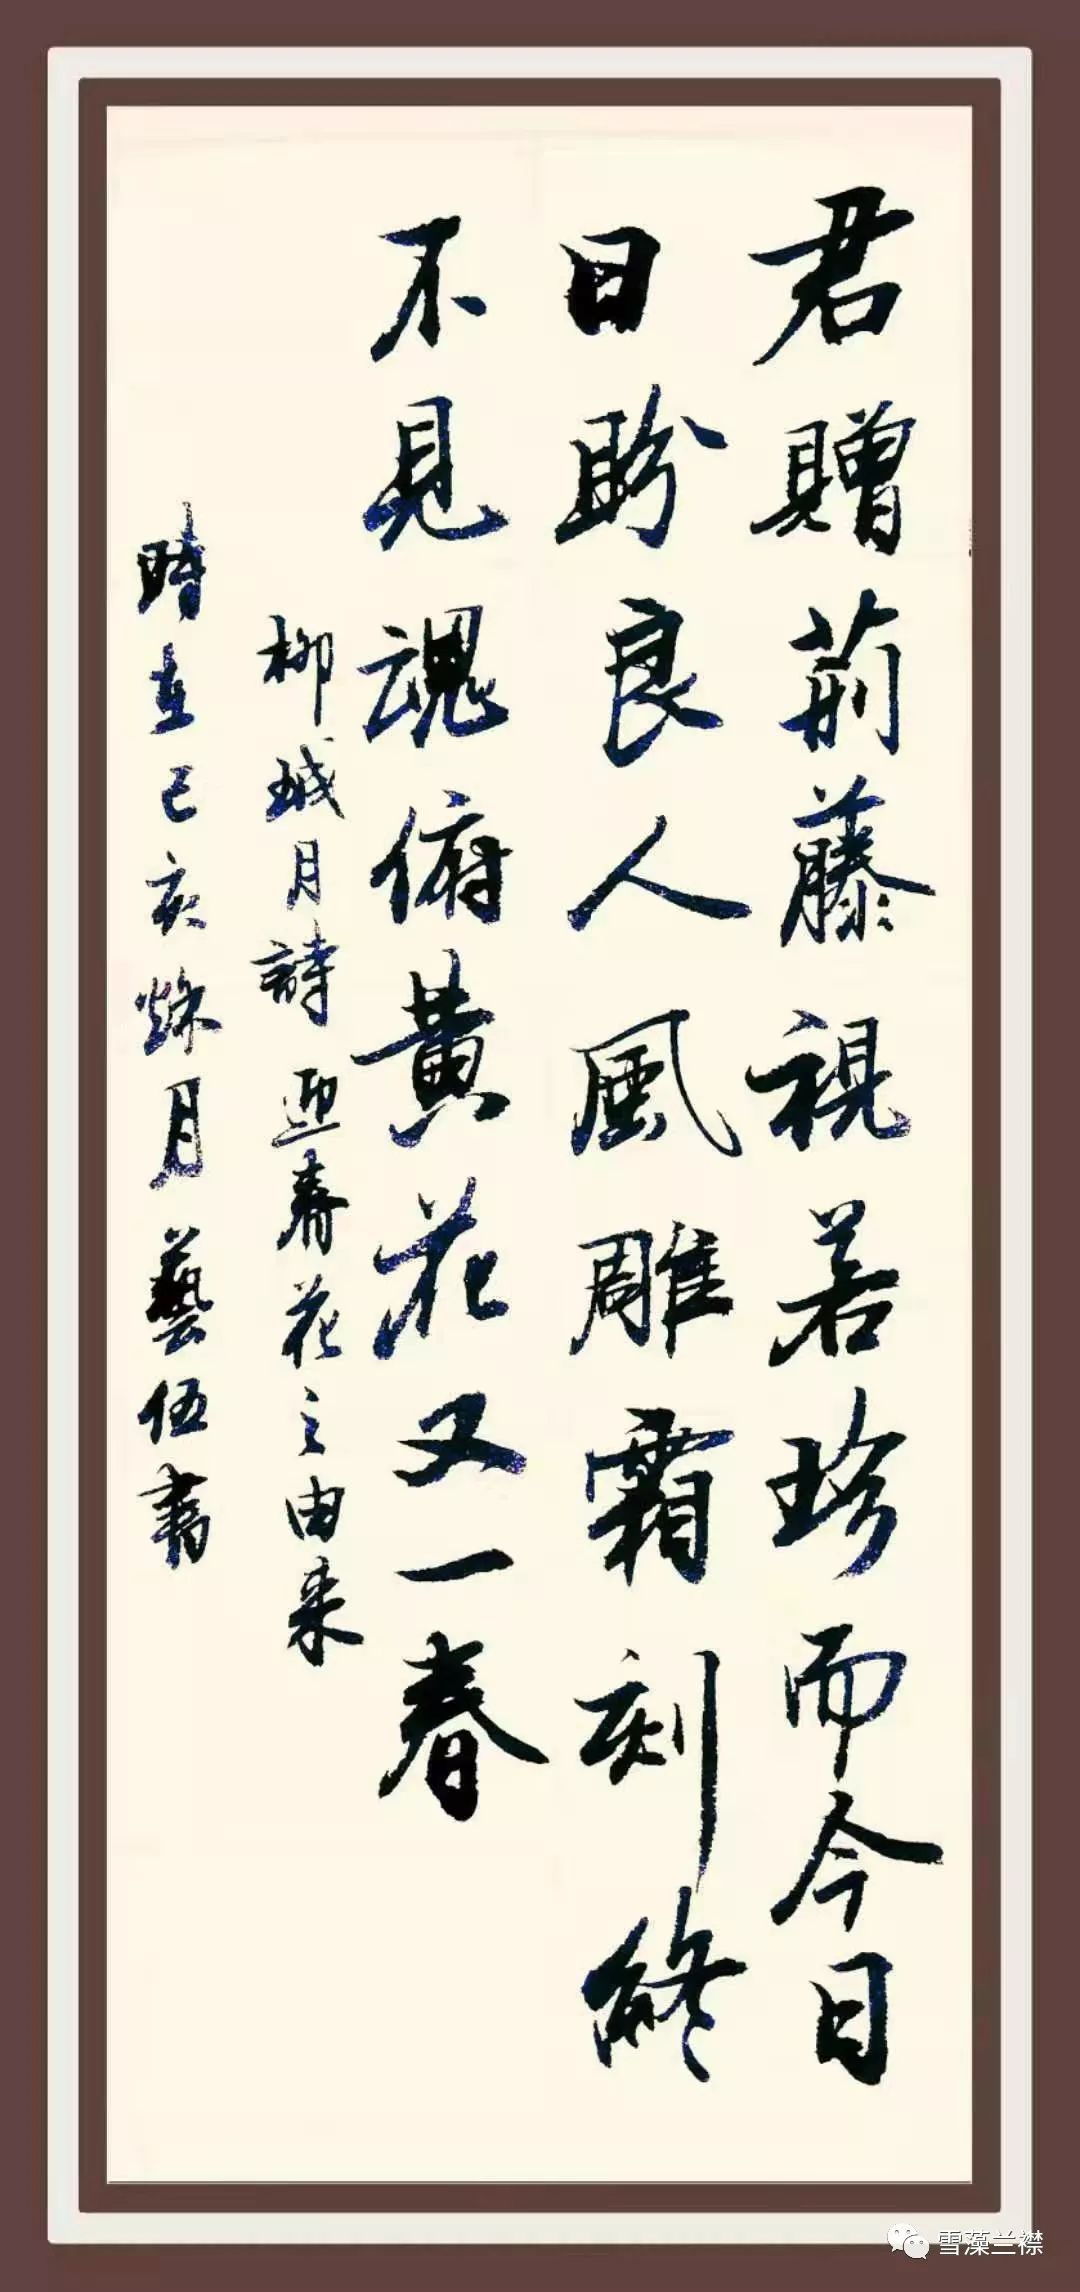 君贈荊藤視若珍而今日
日盼良人風雕霜刻終
不見魂俯黄花又一春
柳城月詩 迎春花之由来
時在己亥秌月藝伍書
雪藻兰襟